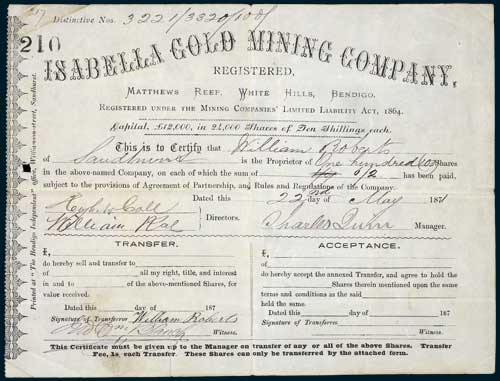 Distinctive Nos. 3221/3320/100/
210
ISABELLA GOLD MINING COMPANY,
REGISTERED,
MATTHEWS REEF, WHITE HILLS, BENDIGO.
REGISTERED UNDER THE MINING COMPANIES' LIMITED LIABILITY ACT, 1864.
Capital, £12,000, in 24,000 Shares of Ten Shillings each.
This is to Certify that William Roberts
of Sandhurst is the Proprietor of One hundred 100 Shares
in the above-named Company, on each of which the sum of has been paid,
subject to the provisions of Agreement of Partnership, and Rules and Regulations of the Company.
Dated this 22nd day of May 1871
William Rae Directors. Charles Manager.
TRANSFER.
I,
do hereby sell and transfer to
of all my right, title, and interest
in and to of the above-mentioned Shares, for
value received.
Dated this day of 187
Signature of Transferror William Roberts
Witness.
ACCEPTANCE.
I,
of
do hereby accept the annexed Transfer, and agree to hold the
Shares therein mentioned upon the same
terms and conditions as the said
held the same.
Dated this day of 187
Signature of Transferree
Witness.
This Certificate must be given up to the Manager on transfer of any or all of the above Shares. Transfer
Fee, 1s. each Transfer. These Shares can only be transferred by the attached form.
Printed at "The Bendigo Independent" office, Williamson-street, Sandhurst.